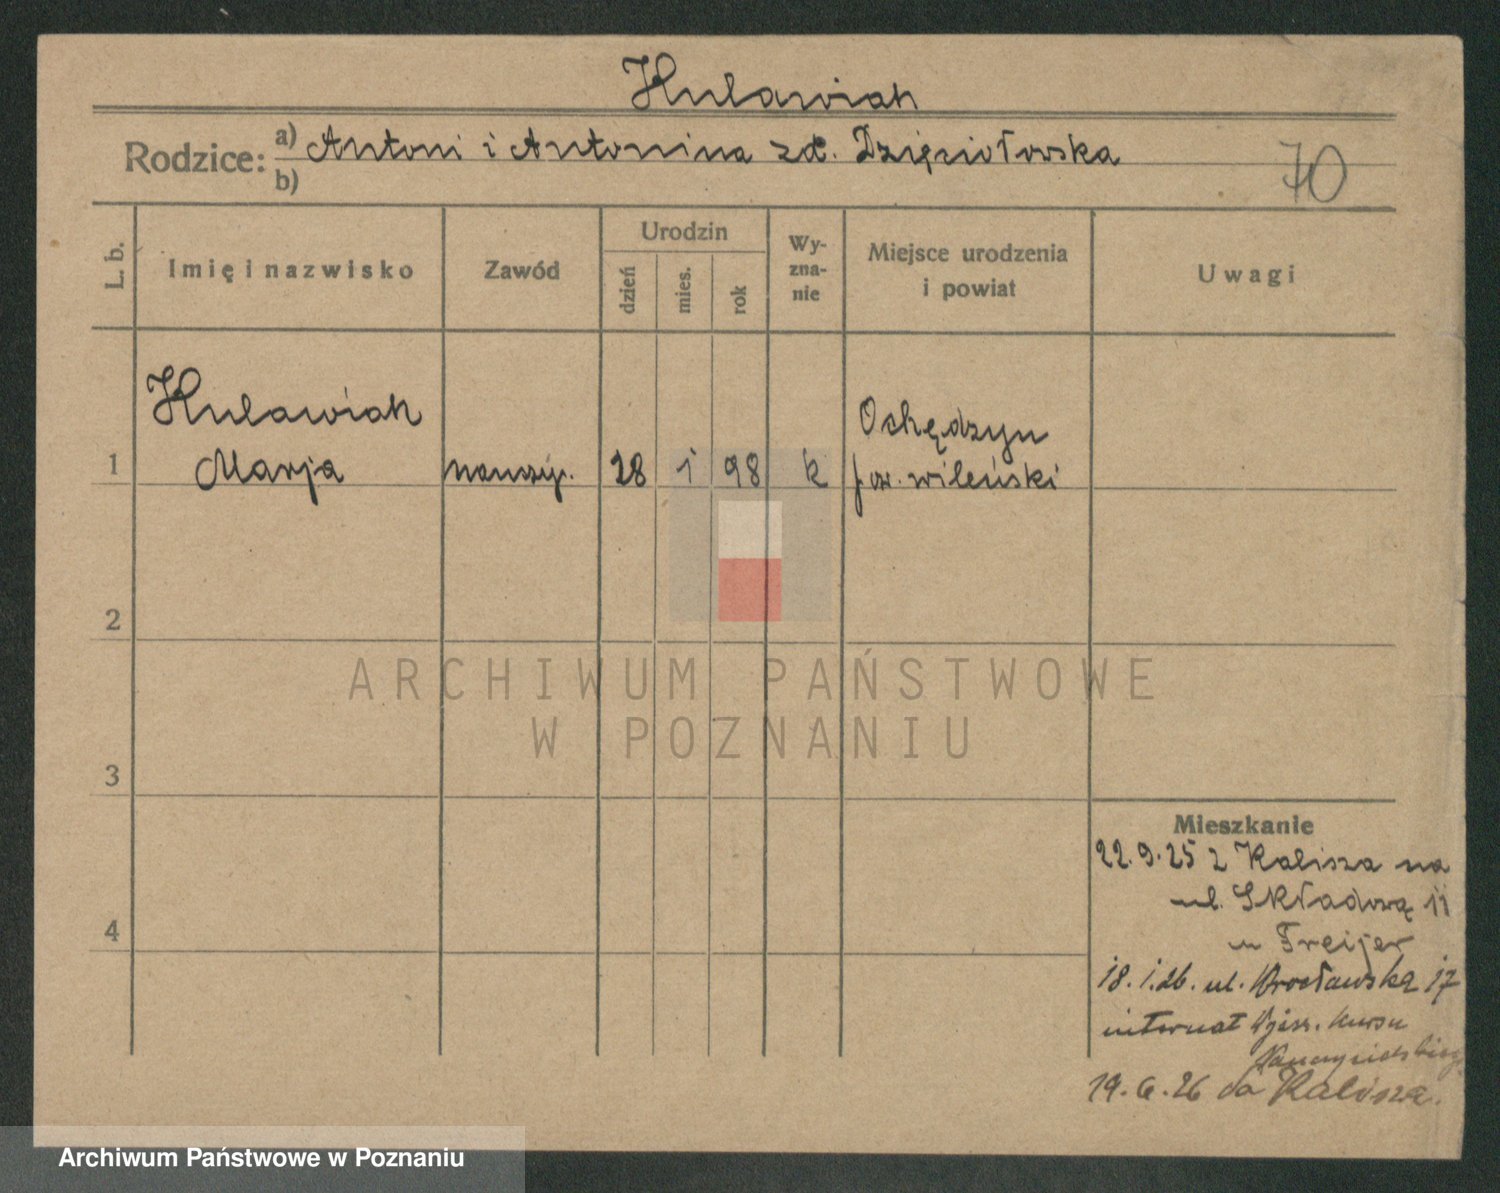 Hulawiak
Rodzice: a) Antoni i Antonina zd. Dzięciołowska
b)
70
L. b.
Imię i nazwisko
Zawód
Urodzin
dzień
mies.
rok
Wy-
zna-
nie
Miejsce urodzenia
i powiat
Uwagi
Hulawiak
Ochędzyn
1 Marja nauczyc. 28 1 98 k pow. wileński
2
ARCHIWUM PAŃSTWOWE
W POZNANIU
3
Mieszkanie
22.9.25 z Kalisza na
ul. Składową 11
4
u Freijer
18.1.26. ul. Wrocławska 17
internat Wyższ. kursu
Nauczycielskiego
19.6.26 do Kalisza.
Archiwum Państwowe w Poznaniu